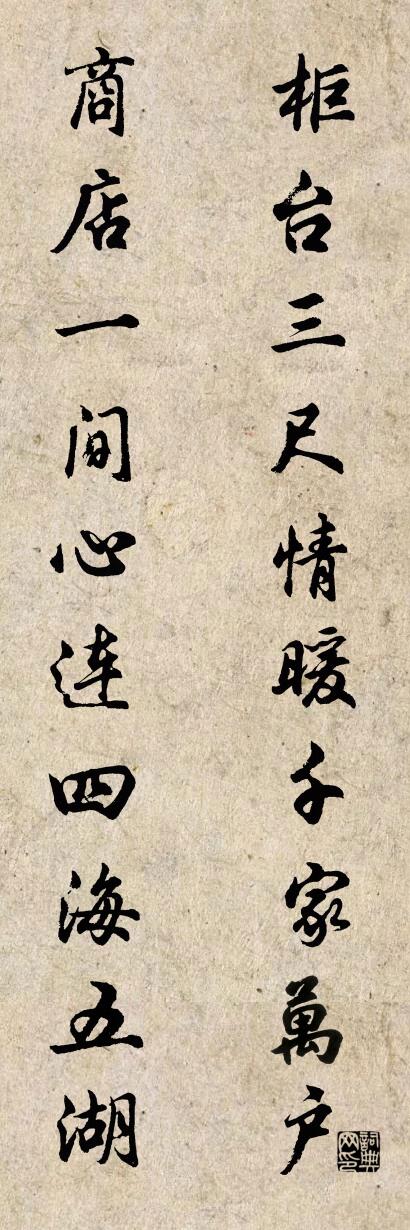 柜台三尺情暖千家萬户
商店一间心连四海五湖
詞典网印